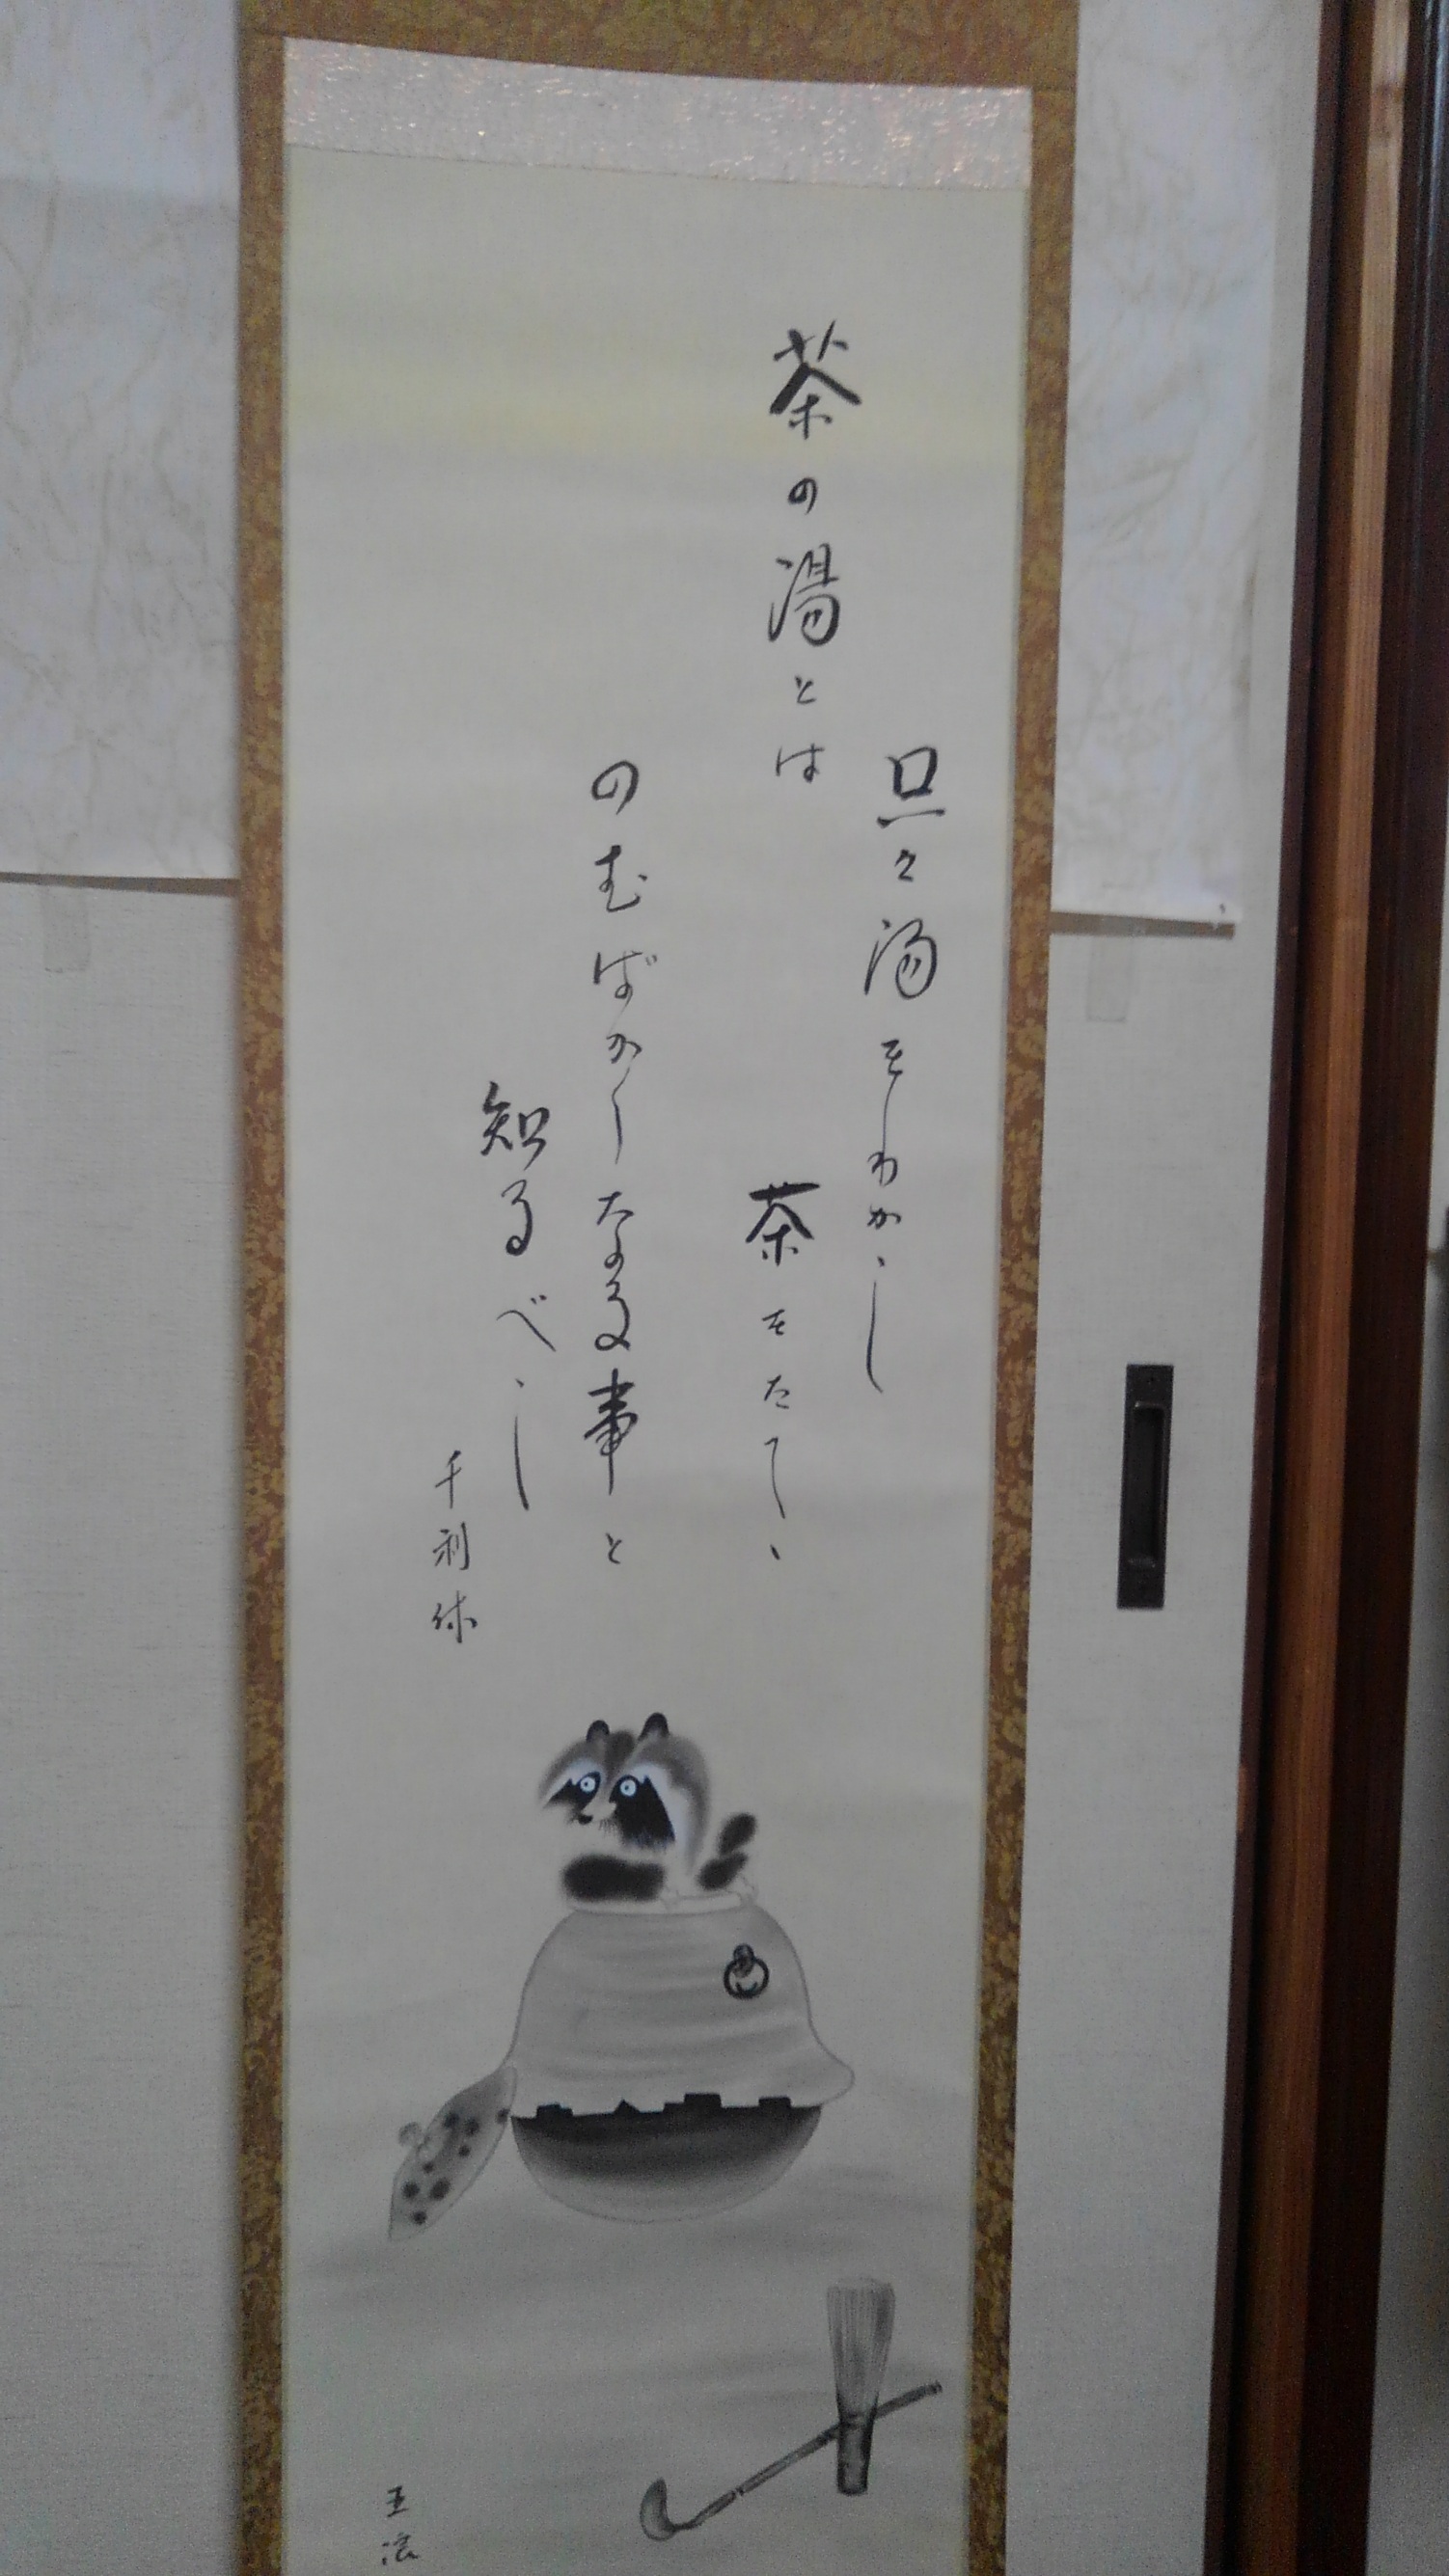 茶の湯とは
只々湯をわかし
茶をたてゝ
のむばかりなる事と
知るべし
千利休